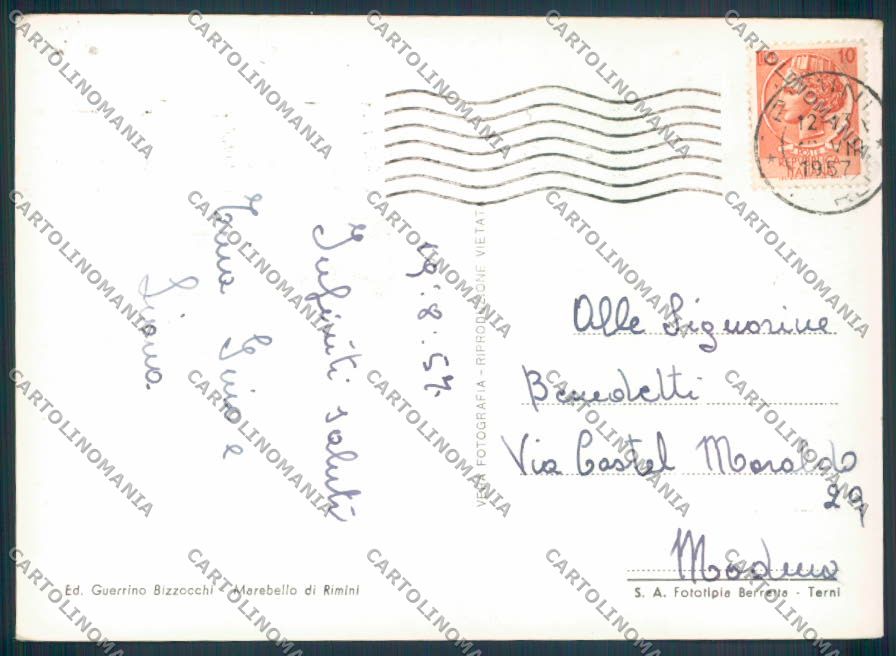 19.8.57.
Infiniti saluti
Gino e
Alle Signorine
Benedetti
Via Castel Maraldo
29
Modena
VERA FOTOGRAFIA - RIPRODUZIONE VIETATA
Ed. Guerrino Bizzocchi - Marebello di Rimini
S. A. Fototipia Berretta - Terni
10
REPUBBLICA
ITALIANA
1957
CARTOLINOMANIA